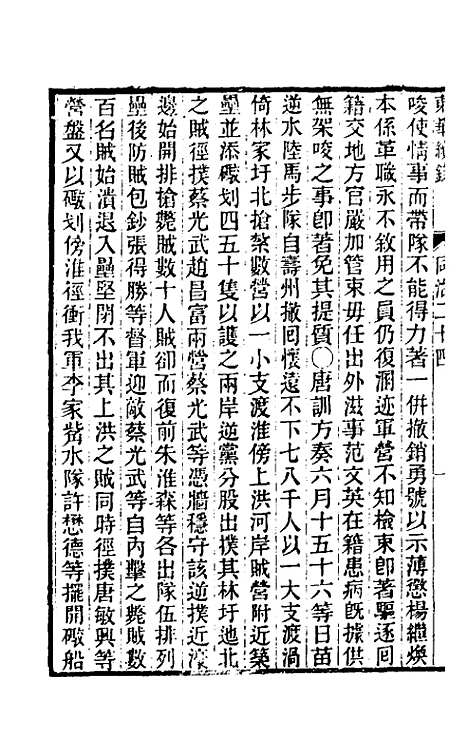 東華續錄　同治二十四
唆使情事而帶隊不能得力著一併撤銷勇號以示薄懲楊繼煥
本係革職永不敘用之員仍復溷迹軍營不知檢束卽著驅逐回
籍交地方官嚴加管束毋任出外滋事范文英在籍患病旣據供
無架唆之事卽著免其提質〇唐訓方奏六月十五十六等日苗
逆水陸馬步隊自壽州撤回懷遠不下七八千人以一大支渡渦
倚林家圩北搶築數營以一小支渡淮傍上洪河岸賊營附近築
壘並添礮划四五十隻以護之兩岸逆黨分股出撲其林圩迤北
之賊徑撲蔡光武趙昌富兩營蔡光武等憑牆穩守該逆撲近濠
邊始開排搶斃賊數十人賊卻而復前朱淮森等各出隊伍排列
壘後防賊包鈔張得勝等督軍迎敵蔡光武等自內擊之斃賊數
百名賊始潰退入壘堅閉不出其上洪之賊同時徑撲唐敏興等
營盤又以礮划傍淮徑衝我軍李家嘴水隊許懋德等擺開礮船